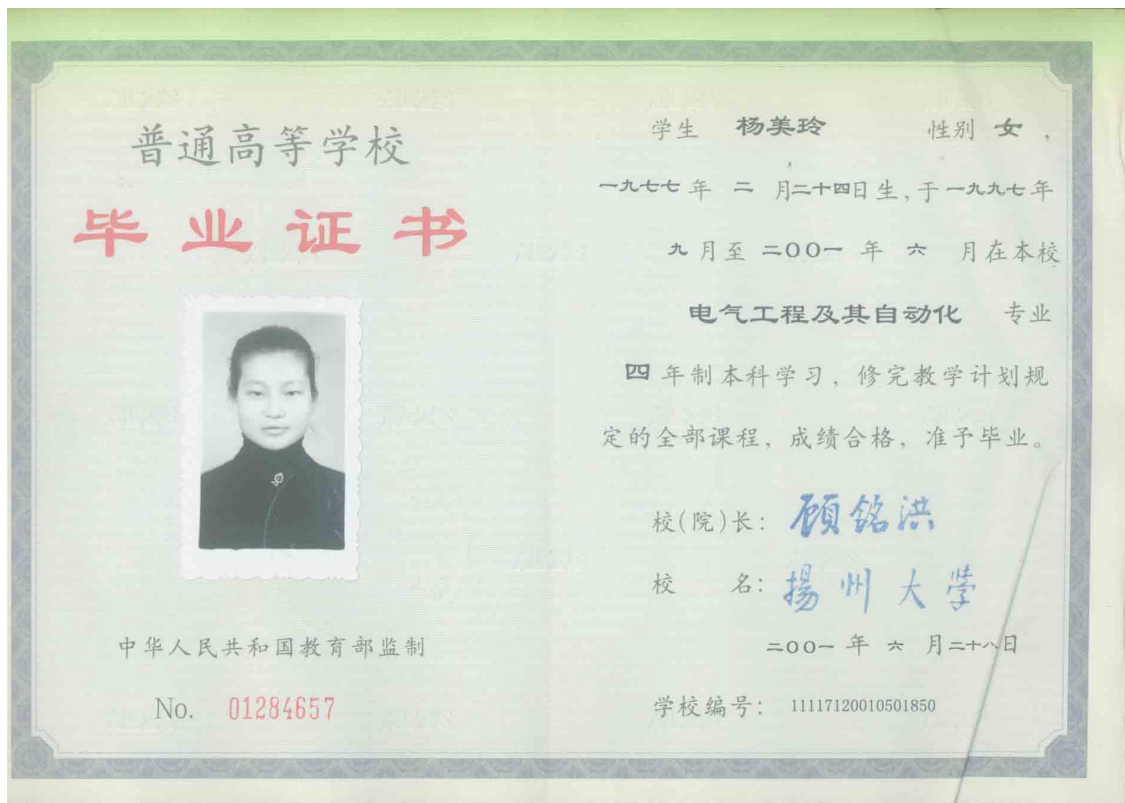 普通高等学校
毕业证书
中华人民共和国教育部监制
No. 01284657
学生 杨美玲 性别 女，
一九七七年 二 月二十四日生，于一九九七年
九月至 二〇〇一 年 六 月在本校
电气工程及其自动化 专业
四年制本科学习，修完教学计划规
定的全部课程，成绩合格，准予毕业。
校(院)长： 顾铭洪
校 名： 揚州大學
二〇〇一 年 六 月二十八日
学校编号： 11117120010501850